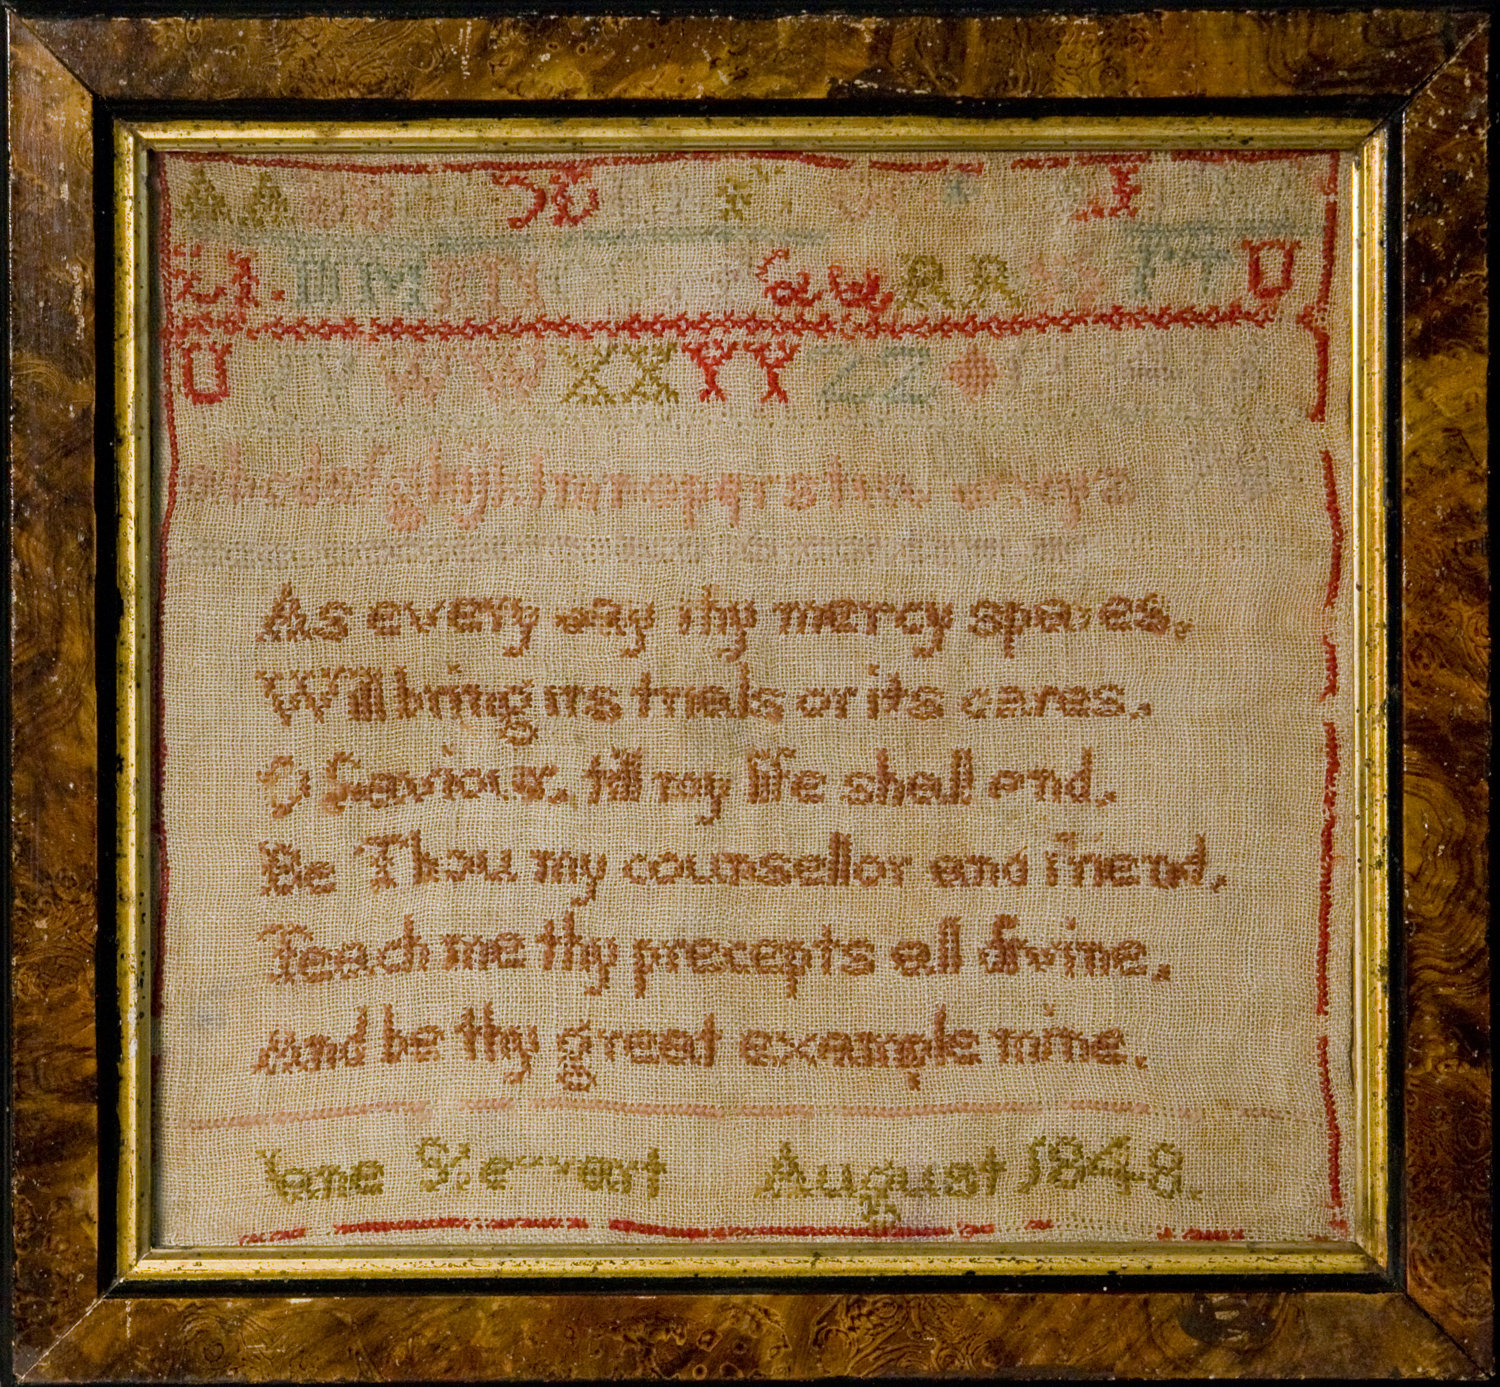 A A B B
M M N N Q Q R R S T T U
U V W W X X Y Y Z Z
a b c d e f g h i j k l m n o p q r s t u v w x y z
As every day thy mercy spares,
Will bring its trials or its cares.
O Saviour, till my life shall end,
Be Thou my counsellor and friend,
Teach me thy precepts all divine,
And be thy great example mine.
Jane Stewart August 1848.